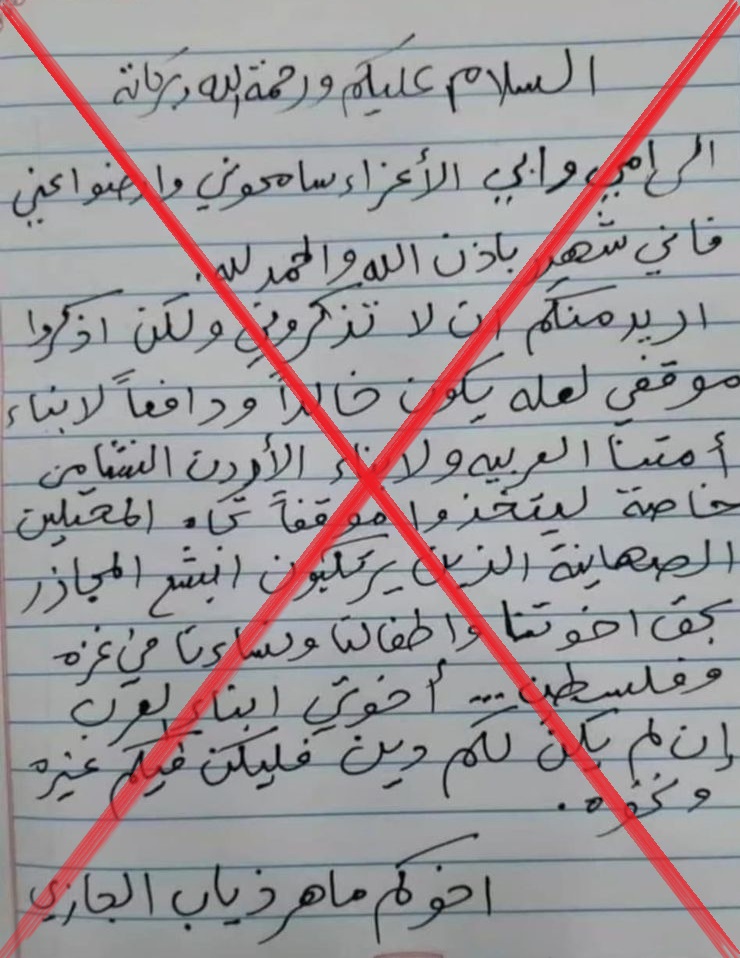 السلام عليكم ورحمة الله وبركاتة
الى امي وابي الأعزاء سامحوني وارضوا عني
فاني شهيد باذن الله والحمد لله.
اريد منكم ان لا تذكروني ولكن اذكروا
موقفي لعله يكون خالداً ودافعاً لابناء
أمتنا العربيه ولابناء الأردن النشامى
خاصة ليتخذوا موقفاً تجاه المحتلين
الصهاينة الذين يرتكبون ابشع المجازر
بحق اخوتنا واطفالنا ونساءنا في غزه
وفلسطين ... أخوتي ابناء لعرب
إن لم يكن لكم دين فليكن فيكم غيره
ونخوه.
اخوكم ماهر ذياب الجازي